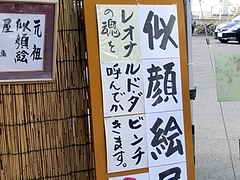 似顔絵屋
レオナルド・ダ・ビンチ
の魂を呼んでか
きます。
元祖
似顔絵
屋